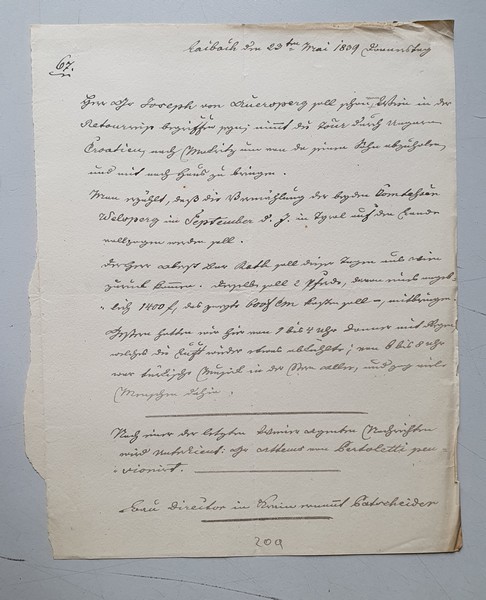 Laibach den 23ten Mai 1839 Donnerstag
67.
Herr Gr Joseph von Auersperg soll schon, Wien in der
Retourreise begriffen seyn; nimmt die Tour durch Ungarn
Croatien, nach Mokritz um von da seinen Sohn abzuholen,
und mit nach Haus zu bringen.
Man erzählt, daß die Vermählung der beyden Comtessen
Welsperg im September d. J. in Tyrol auf dem Lande
vollzogen werden soll.
Der Herr Rath soll dieser Tagen aus Wien
zurück kommen. Derselbe soll 2 Pferde, davon eines angeb-
lich 1400 f, das zweyte kosten soll, mitbringen
Gestern hatten wir hier von 1 bis 4 Uhr Donner mit Regen
welches die Luft wieder etwas abkühlte; von 6 bis 8 Uhr
war türkische Musick in der Stern Allee, und zog viele
Menschen dahin.
Nach einer der letzten Wiener Nachrichten
wird von Bertoletti pen-
sionirt.
Bau Director in Krain ernannt
209